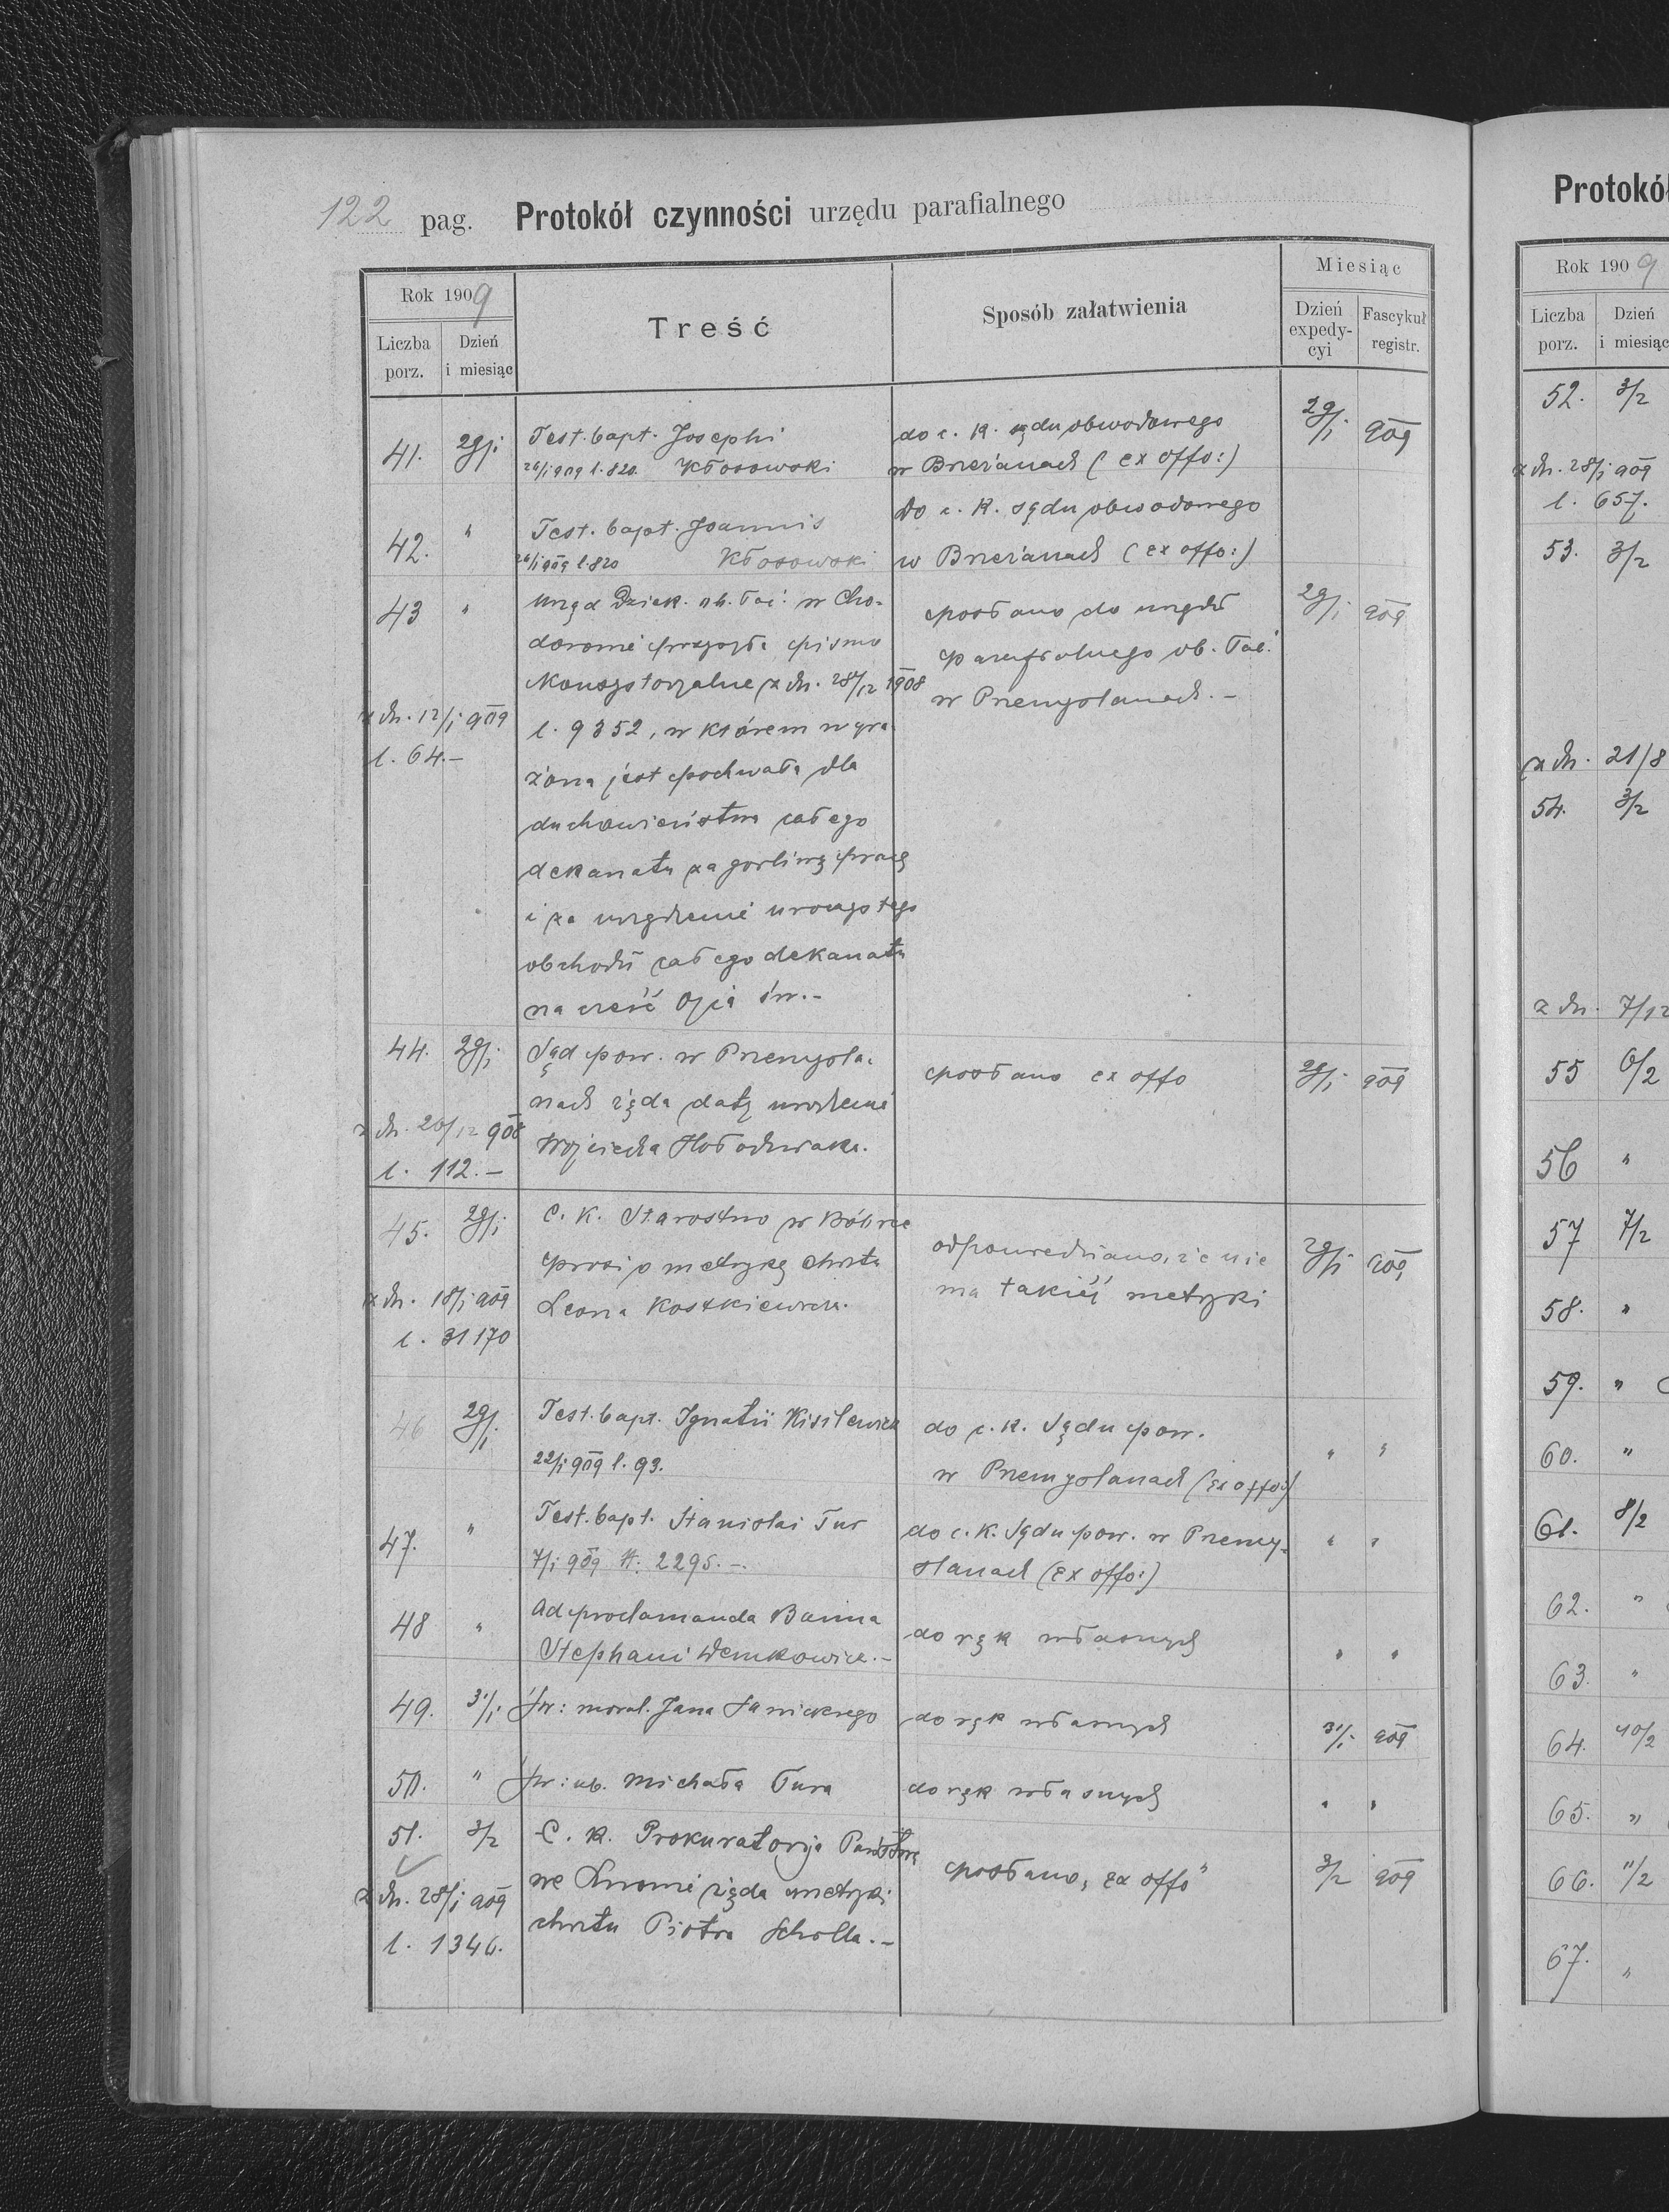 122 pag. Protokół czynności urzędu parafialnego
Rok 1909
Liczba porz.
Dzień i miesiąc
Treść
Sposób załatwienia
Miesiąc
Dzień expedycyi
Fascykuł registr.
41. 29/I Test. bapt. Josephi do c. k. sądu obwodowego 29/I 909
26/I 909 l. 820. Kłosowski w Brzeżanach (ex offo:)
42. " Test. bapt. Joannis do c. k. sądu obwodowego
26/I 909 l. 820 Kłosowski w Brzeżanach (ex offo:)
43 " Urząd Dziek. ob. łać. w Cho- posłano do urzędu 29/I 909
dorowie przysyła pismo parafialnego ob. łać.
Konsystorjalne z dn. 28/12 1908 w Przemyślanach. -
z dn. 12/I 909 l. 9352, w którem wyra-
l. 64. - żona jest pochwała dla
duchowieństwa całego
dekanatu za gorliwą pracę
i za urządzenie uroczystego
obchodu całego dekanatu
na cześć Ojca św. -
44. 29/I Sąd pow. w Przemyśla- posłano ex offo 29/I 909
nach żąda datę urodzenia
z dn. 26/12 908 Wojciecha
l. 112. -
45. 29/I C. K. Starostwo w Bóbrce odpowiedziano, że nie 29/I 909
prosi o metrykę chrztu ma takiej metryki
z dn. 18/I 909 Leona Kostkiewicza.
l. 31170
46 29/I Test. bapt. Ignatii Kisilewicz do c. k. Sądu pow. " "
22/I 909 l. 93. w Przemyślanach (ex offo:)
47. " Test. bapt. Stanislai Tur do c. K. Sądu pow. w Przemy- " "
7/I 909 2295. - ślanach (ex offo:)
48 " Ad proclamanda Banna do rąk własnych " "
Stephani Demkowicz. -
49. 31/I Św: moral. Jana do rąk własnych 31/I 909
50. " Św: ub. Michała Tura do rąk własnych " "
51. 3/2 C. K. Prokuratorja Państwa posłano „ex offo" 3/2 909
z dn. 28/I 909 we Lwowie żąda metryki
l. 1346. chrztu Piotra Scholla. -
Protokół
Rok 1909
Liczba porz.
Dzień i miesiąc
52. 3/2
z dn. 28/I 909
l. 657.
53. 3/2
z dn. 21/8
54. 3/2
z dn. 7/12
55 6/2
56 "
57 7/2
58. "
59. "
60. "
61. 8/2
62. "
63. "
64. 10/2
65. "
66. 11/2
67. "